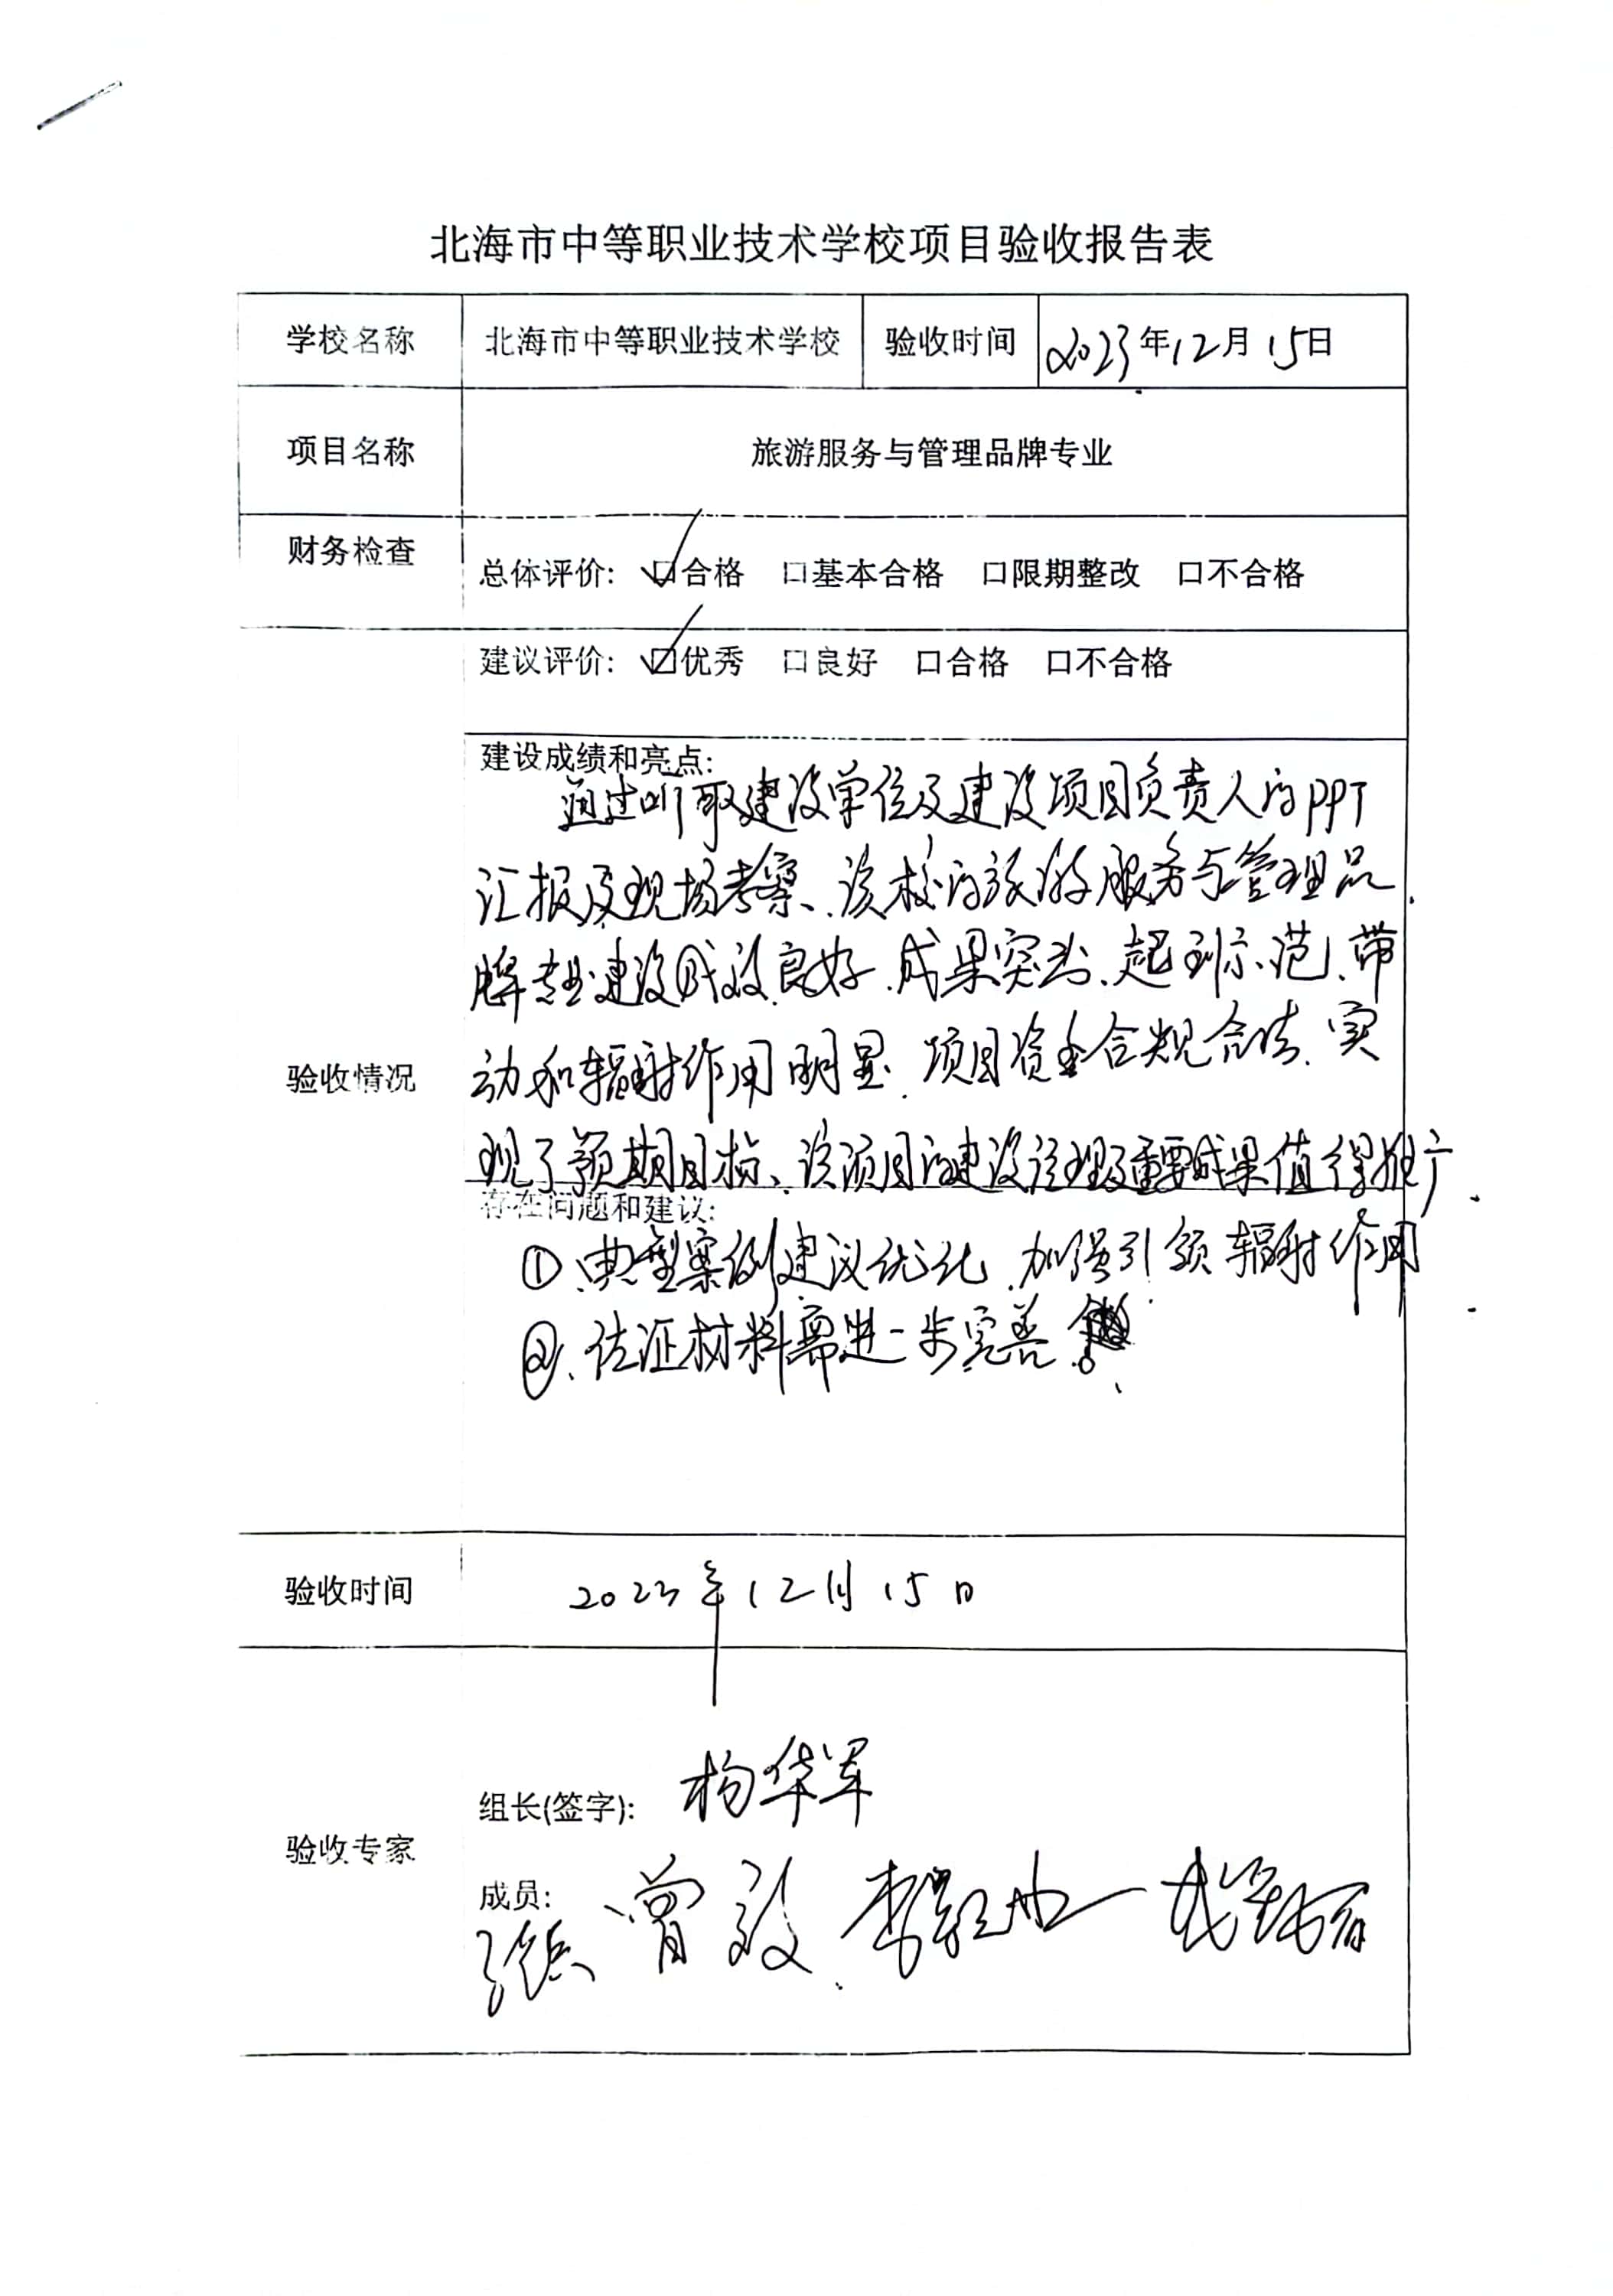 北海市中等职业技术学校项目验收报告表
学校名称 北海市中等职业技术学校 验收时间 2023年12月15日
项目名称 旅游服务与管理品牌专业
财务检查 总体评价: ☑合格 □基本合格 □限期整改 □不合格
建议评价: ☑优秀 □良好 □合格 □不合格
建设成绩和亮点:
通过听取建设单位及建设项目负责人的PPT
汇报及现场考察、该校的旅游服务与管理品
牌专业建设成效良好、成果突出、起到示范、带
验收情况
动和辐射作用明显、项目资金合规合法、实
现了预期目标、该项目的建设 及重要成果值得推广.
存在问题和建议:
①、典型案例建议优化、加强引领辐射作用
②、佐证材料需进一步完善。
验收时间 2023年12月15日
组长(签字): 杨华军
验收专家
成员: 曾 李
张